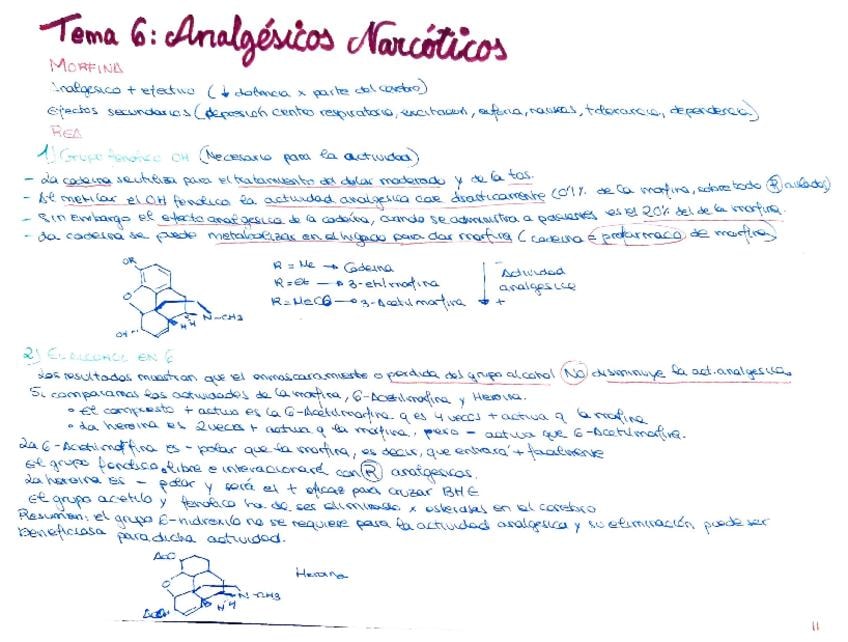 Tema 6: Analgésicos Narcóticos
MORFINA
Analgésico + efectivo (↓ dolencia x parte del cerebro)
Efectos secundarios (depresión centro respiratorio, excitación, euforia, nauseas, + tolerancia, dependencia)
REA
1) Grupo fenólico OH (Necesario para la actividad)
- La codeina se utiliza para el tratamiento del dolor moderado y de la tos.
- Al metilar el OH fenólico la actividad analgésica cae drasticamente (0'1% de la morfina, sobre todo R aislados)
- Sin embargo el efecto analgésico de la codeína, cuando se administra a pacientes es el 20% del de la morfina.
- La codeina se puede metabolizar en el higado para dar morfina (codeina = profarmaco de morfina)
OR
R = Me → Codeina
R = Et → 3-etilmorfina
R = MeCO → 3-Acetilmorfina
Actividad
analgésica
+
O
N-CH3
H H
OH
2) El alcohol en 6
Los resultados muestran que el enmascaramiento o perdida del grupo alcohol NO disminuye la act. analgésica.
Si comparamos las actividades de la morfina, 6-Acetilmorfina y Heroina.
• El compuesto + activo es la 6-Acetilmorfina q es 4 veces + activa q la morfina
• La heroina es 2 veces + activa q la morfina, pero - activa que 6-Acetilmorfina.
La 6-Acetilmorfina es - polar que la morfina, es decir, que entrará + facilmente
El grupo fenólico libre e interacionará con R analgésicos.
La heroina es - polar y será el + eficaz para cruzar BHE
El grupo acetilo y fenolico ha de ser eliminado x esterasas en el cerebro
Resumen: el grupo 6-hidroxilo no se requiere para la actividad analgésica y su eliminación puede ser
beneficiosa para dicha actividad.
AcO
Heroina
O
N-CH3
H H
11